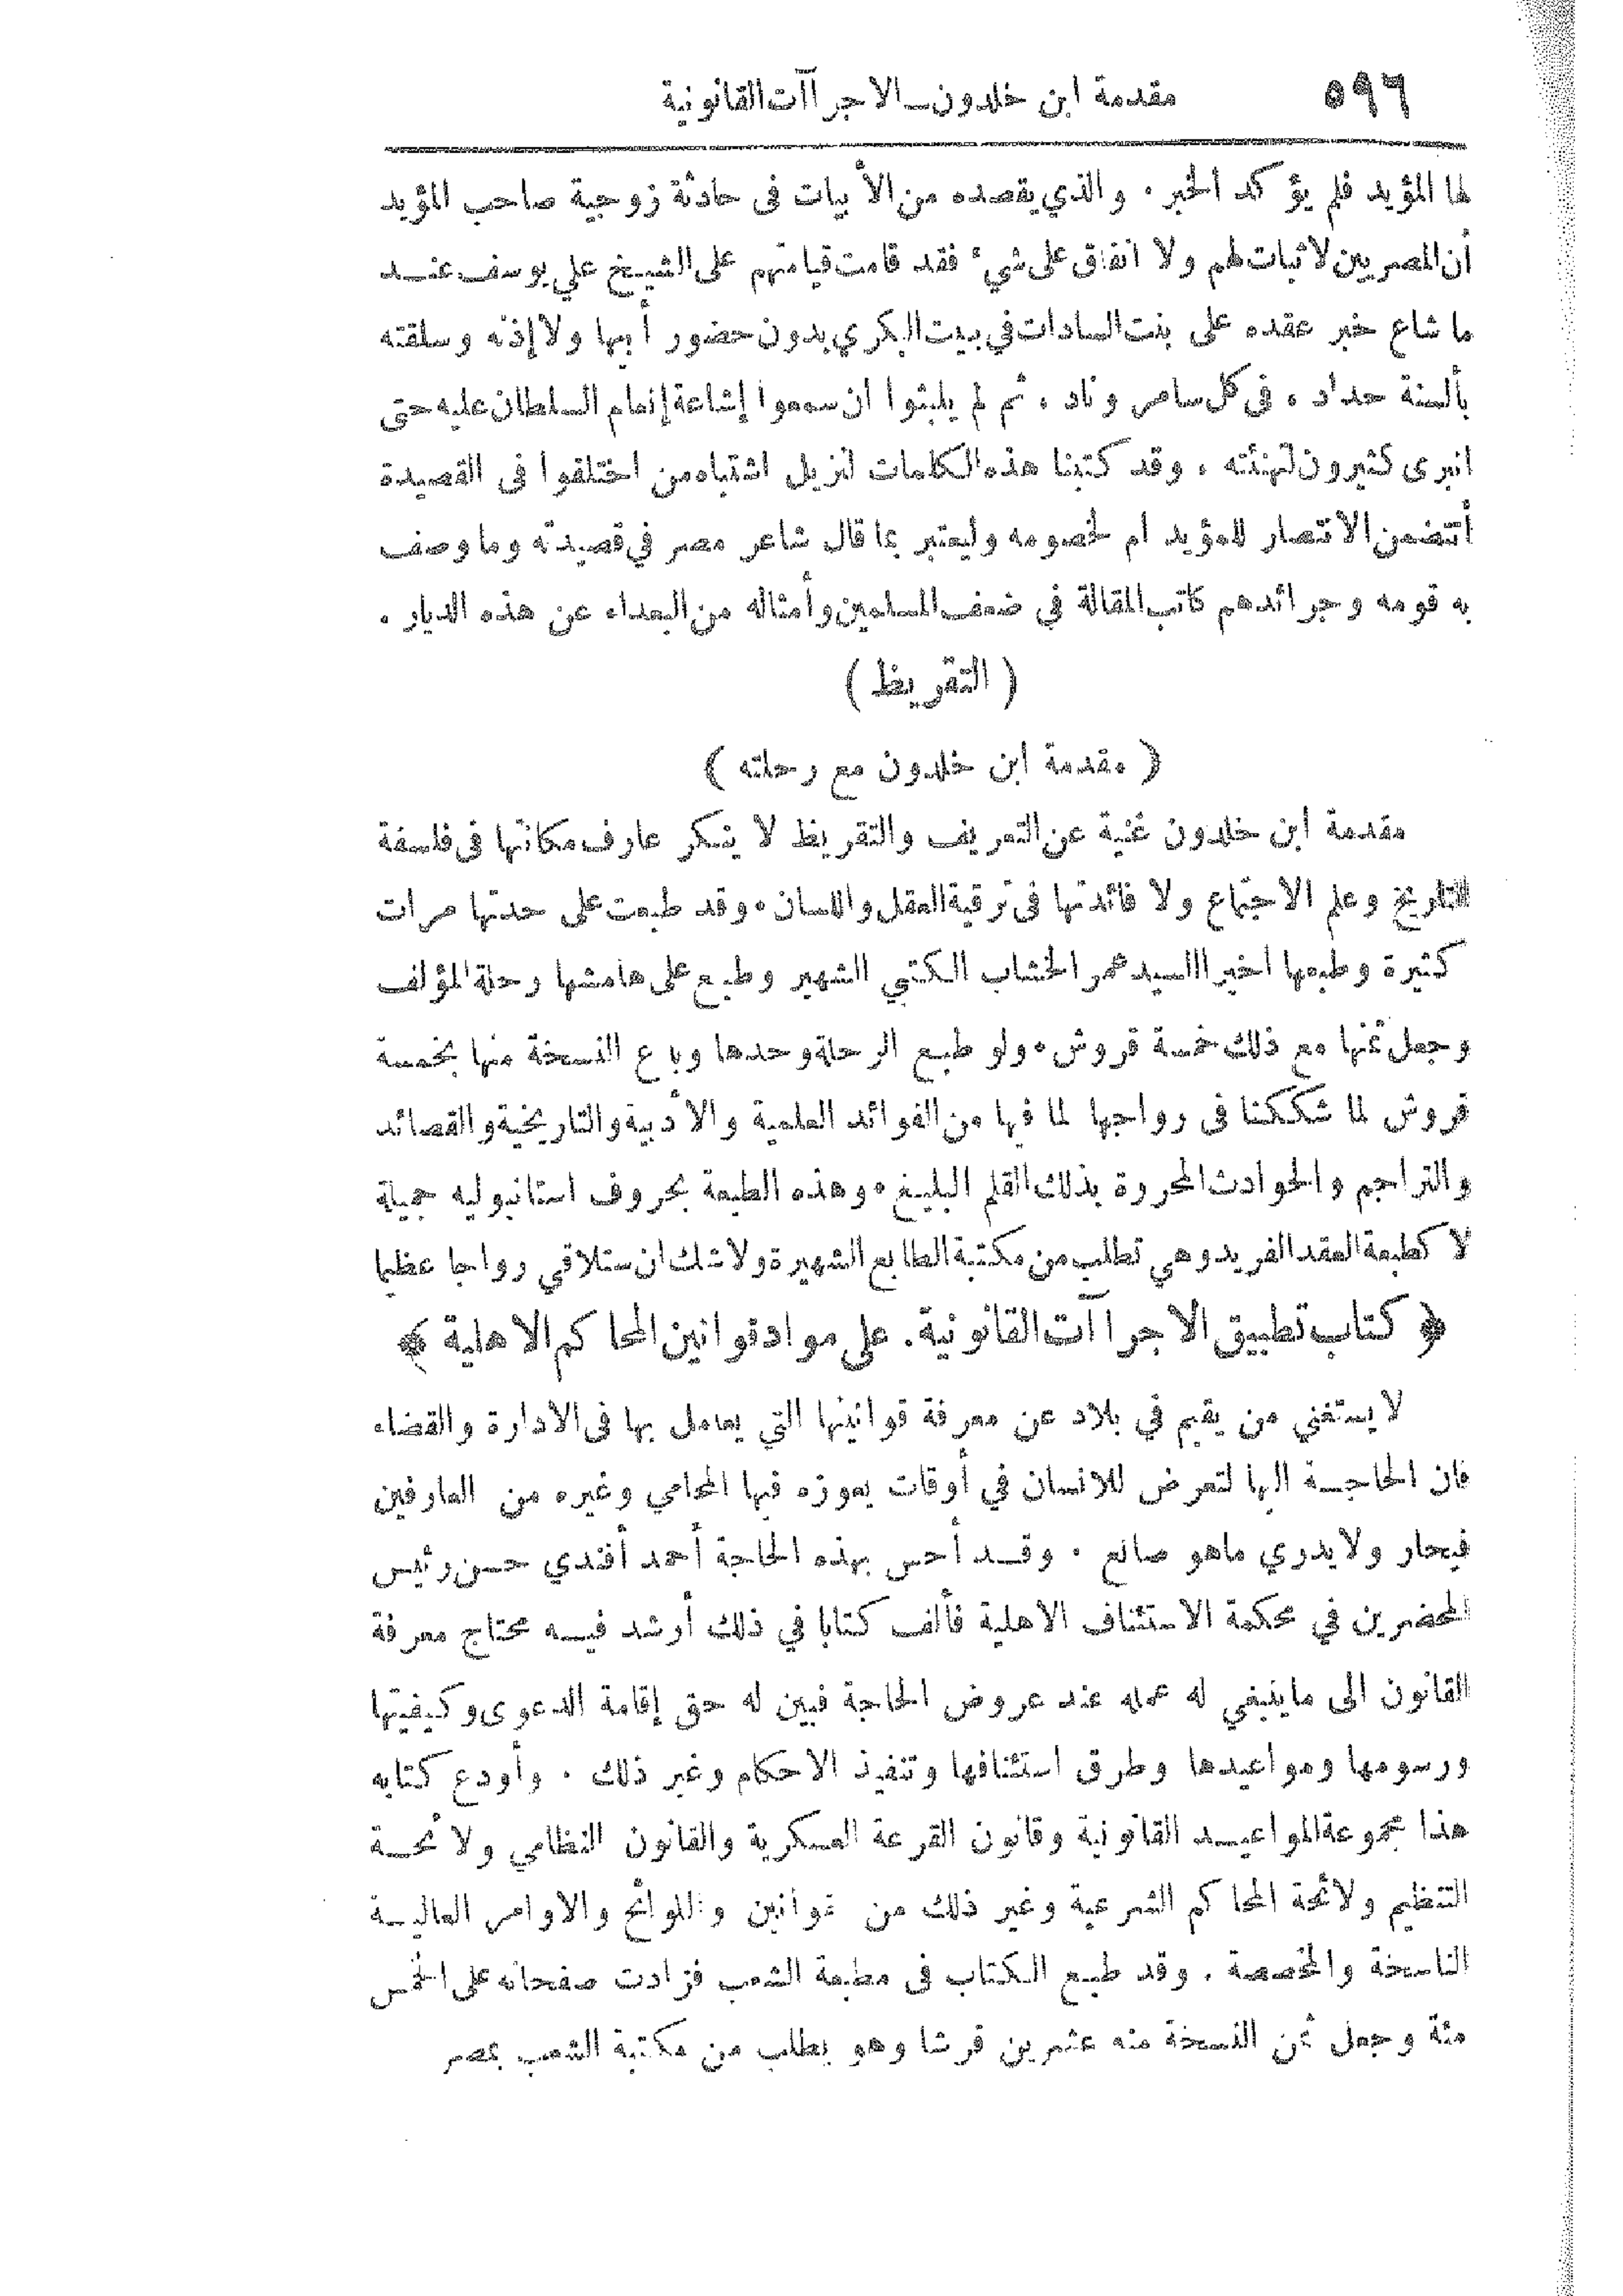 ٥٩٦ مقدمة ابن خلدون ـ الاجراآت القانونية
لها المؤيد فلم يؤكد الخبر . والذي يقصده من الأبيات فى حادثة زوجية صاحب المؤيد
أن المصريين لا ثبات لهم ولا اتفاق على شيء فقد قامت قيامتهم على الشيخ علي يوسف عند
ما شاع خبر عقده على بنت السادات في بيت البكري بدون حضور أبيها ولا إذنه وسلقته
بألسنة حداد ، فى كل سامر وناد ، ثم لم يلبثوا ان سمعوا إشاعة إنعام السلطان عليه حتى
انبرى كثيرون لتهنئته . وقد كتبنا هذه الكلمات لنزيل اشتباه من اختلفوا فى القصيدة
أتتضمن الانتصار للمؤيد ام لخصومه وليعتبر بما قال شاعر مصر في قصيدته وما وصف
به قومه وجرائدهم كاتب المقالة في ضعف المسلمين وأمثاله من البعداء عن هذه الديار .
( التقريظ )
( مقدمة ابن خلدون مع رحلته )
مقدمة ابن خلدون غنية عن التعريف والتقريظ لا ينكر عارف مكانتها فى فلسفة
التاريخ وعلم الاجتماع ولا فائدتها فى ترقية العقل واللسان . وقد طبعت على حدتها مرات
كثيرة وطبعها اخيرا السيد عمر الخشاب الكتبي الشهير وطبع على هامشها رحلة المؤلف
وجعل ثمنها مع ذلك خمسة قروش . ولو طبع الرحلة وحدها وباع النسخة منها بخمسة
قروش لما شككنا فى رواجها لما فيها من الفوائد العلمية والأدبية والتاريخية والقصائد
والتراجم والحوادث المحررة بذلك القلم البليغ . وهذه الطبعة بحروف استانبوليه جميلة
لا كطبعة العقد الفريد وهي تطلب من مكتبة الطابع الشهيرة ولا شك ان ستلاقي رواجا عظيما
﴿ كتاب تطبيق الاجراآت القانونية . على مواد قوانين المحاكم الاهلية ﴾
لا يستغني من يقيم في بلاد عن معرفة قوانينها التي يعامل بها فى الادارة والقضاء
فان الحاجة اليها لتعرض للانسان في أوقات يعوزه فيها المحامي وغيره من العارفين
فيحار ولا يدري ماهو صانع . وقد أحس بهذه الحاجة أحمد أفندي حسن رئيس
المحضرين في محكمة الاستئناف الاهلية فألف كتابا في ذلك أرشد فيه محتاج معرفة
القانون الى ماينبغي له عمله عند عروض الحاجة فبين له حق إقامة الدعوى وكيفيتها
ورسومها ومواعيدها وطرق استئنافها وتنفيذ الاحكام وغير ذلك . وأودع كتابه
هذا مجموعة المواعيد القانونية وقانون القرعة العسكرية والقانون النظامي ولائحة
التنظيم ولائحة المحاكم الشرعية وغير ذلك من قوانين واللوائح والاوامر العالية
الناسخة والمخصصة . وقد طبع الكتاب فى مطبعة الشعب فزادت صفحاته على الخمس
مئة وجعل ثمن النسخة منه عشرين قرشا وهو يطلب من مكتبة الشعب بمصر